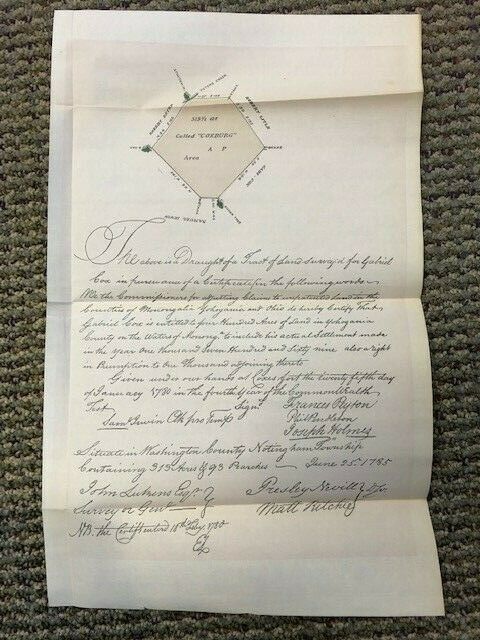 313½ ar
Called "COXBURG"
A P
Area
ROBERT LYTLE
SAMUEL IRWIN
The above is a Draught of a Tract of Land survey'd for Gabriel
Cox in pursuance of a Certificate in the following words
We the Commissioners for adjusting Claims to unpatented land in the
Counties of Monongalia Yohogania and Ohio do hereby Certify that
Gabriel Cox is entitled to four Hundred Acres of land in Yohogania
County on the Waters of Monong. to include his actual Settlement made
in the year One thousand Seven Hundred and Sixty nine also a right
in Preemption to One thousand adjoining thereto
Given under our hands at Coxes fort the twenty fifth day
of January 1780 in the fourth Year of the Commonwealth
Test Sign'd Francis Peyton
Sam Irwin Clk pro Temps Phil Pendleton
Joseph Holmes
Situate in Washington County Nottingham Township
Containing 313 Acres & 93 Pearches — June 25th 1785
John Lukens Esqr. Presley Nevill
Survey or Genl — Matt Ritchie
NB. the Certift entered 18th 1780